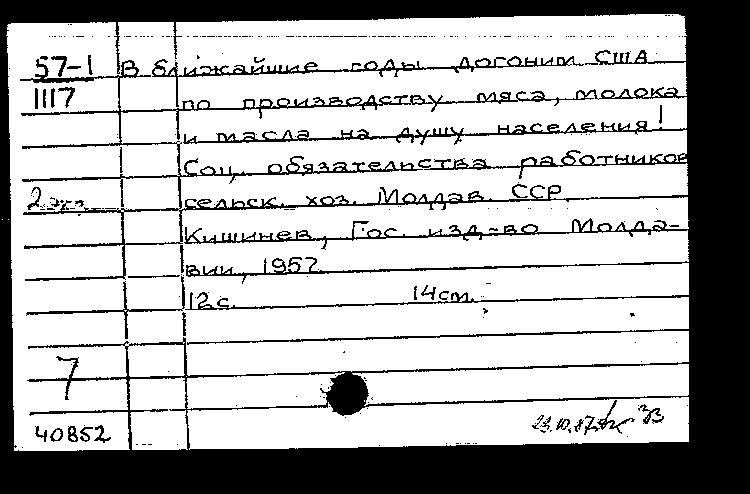 57-1 В ближайшие годы догоним США
1117 по производству мяса, молока
и масла на душу населения!
Соц. обязательства работников
2 экз. сельск. хоз. Молдав. ССР.
Кишинев, Гос. изд-во Молда-
вии, 1957.
12 с. 14 см.
7
40852